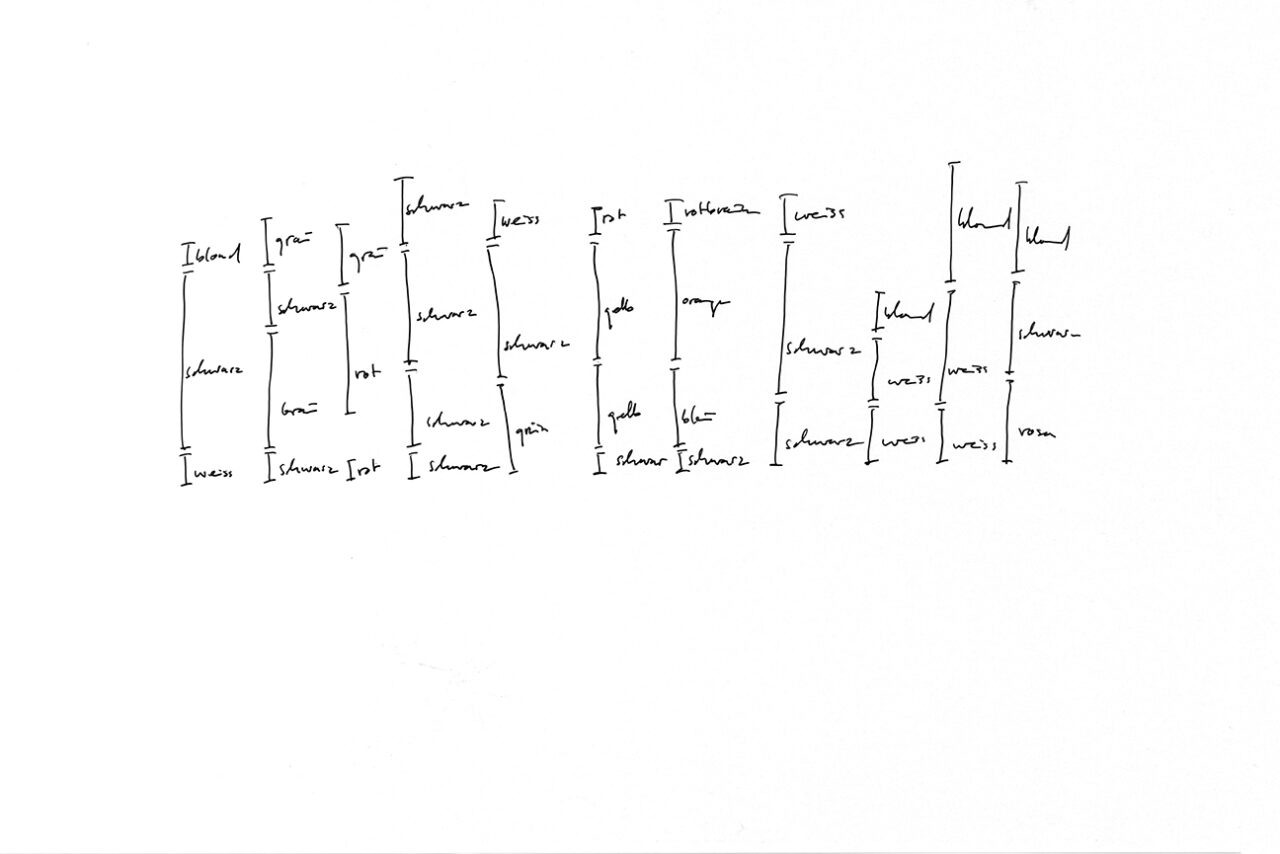 blond
schwarz
weiss
grau
schwarz
grau
schwarz
grau
rot
rot
schwarz
schwarz
schwarz
schwarz
weiss
schwarz
grün
rot
gelb
gelb
schwar
rotbraun
orange
blau
schwarz
weiss
schwarz
schwarz
blond
weiss
weiss
blond
weiss
weiss
blond
schwarz
rosa